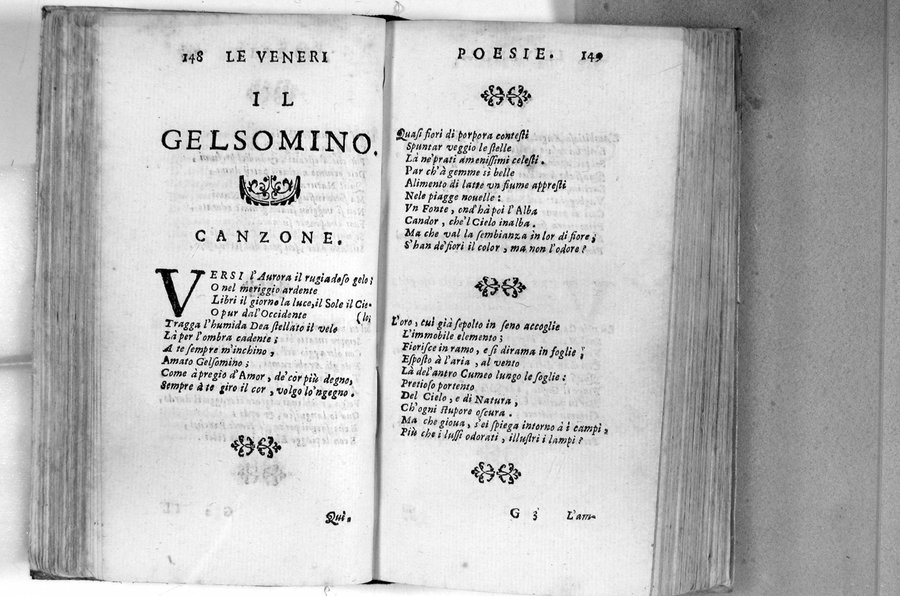 148 LE VENERI
IL
GELSOMINO.
CANZONE.
VERSI l'Aurora il rugiadoso gelo;
O nel meriggio ardente
Libri il giorno la luce, il Sole il Cie-
O pur dal'Occidente (lo;
Tragga l'humida Dea stellato il velo
Là per l'ombra cadente;
A te sempre m'inchino,
Amato Gelsomino;
Come à pregio d'Amor, de'cor più degno,
Sempre à te giro il cor, volgo lo'ngegno.
Qua-
POESIE. 149
Quasi fiori di porpora contesti
Spuntar veggio le stelle
Là ne'prati amenissimi celesti.
Par ch'à gemme sì belle
Alimento di latte vn fiume appresti
Nele piagge nouelle:
Vn Fonte, ond'hà poi l'Alba
Candor, che'l Cielo inalba.
Ma che val la sembianza in lor di fiore;
S'han de'fiori il color, ma non l'odore?
L'oro, cui già sepolto in seno accoglie
L'immobile elemento;
Fiorisce in ramo, e si dirama in foglie;
Esposto à l'aria, al vento
Là del'antro Cumeo lungo le soglie:
Pretioso portento
Del Cielo, e di Natura,
Ch'ogni stupore oscura.
Ma che gioua, s'ei spiega intorno à i campi,
Più che i lussi odorati, illustri i lampi?
G 3 L'am-